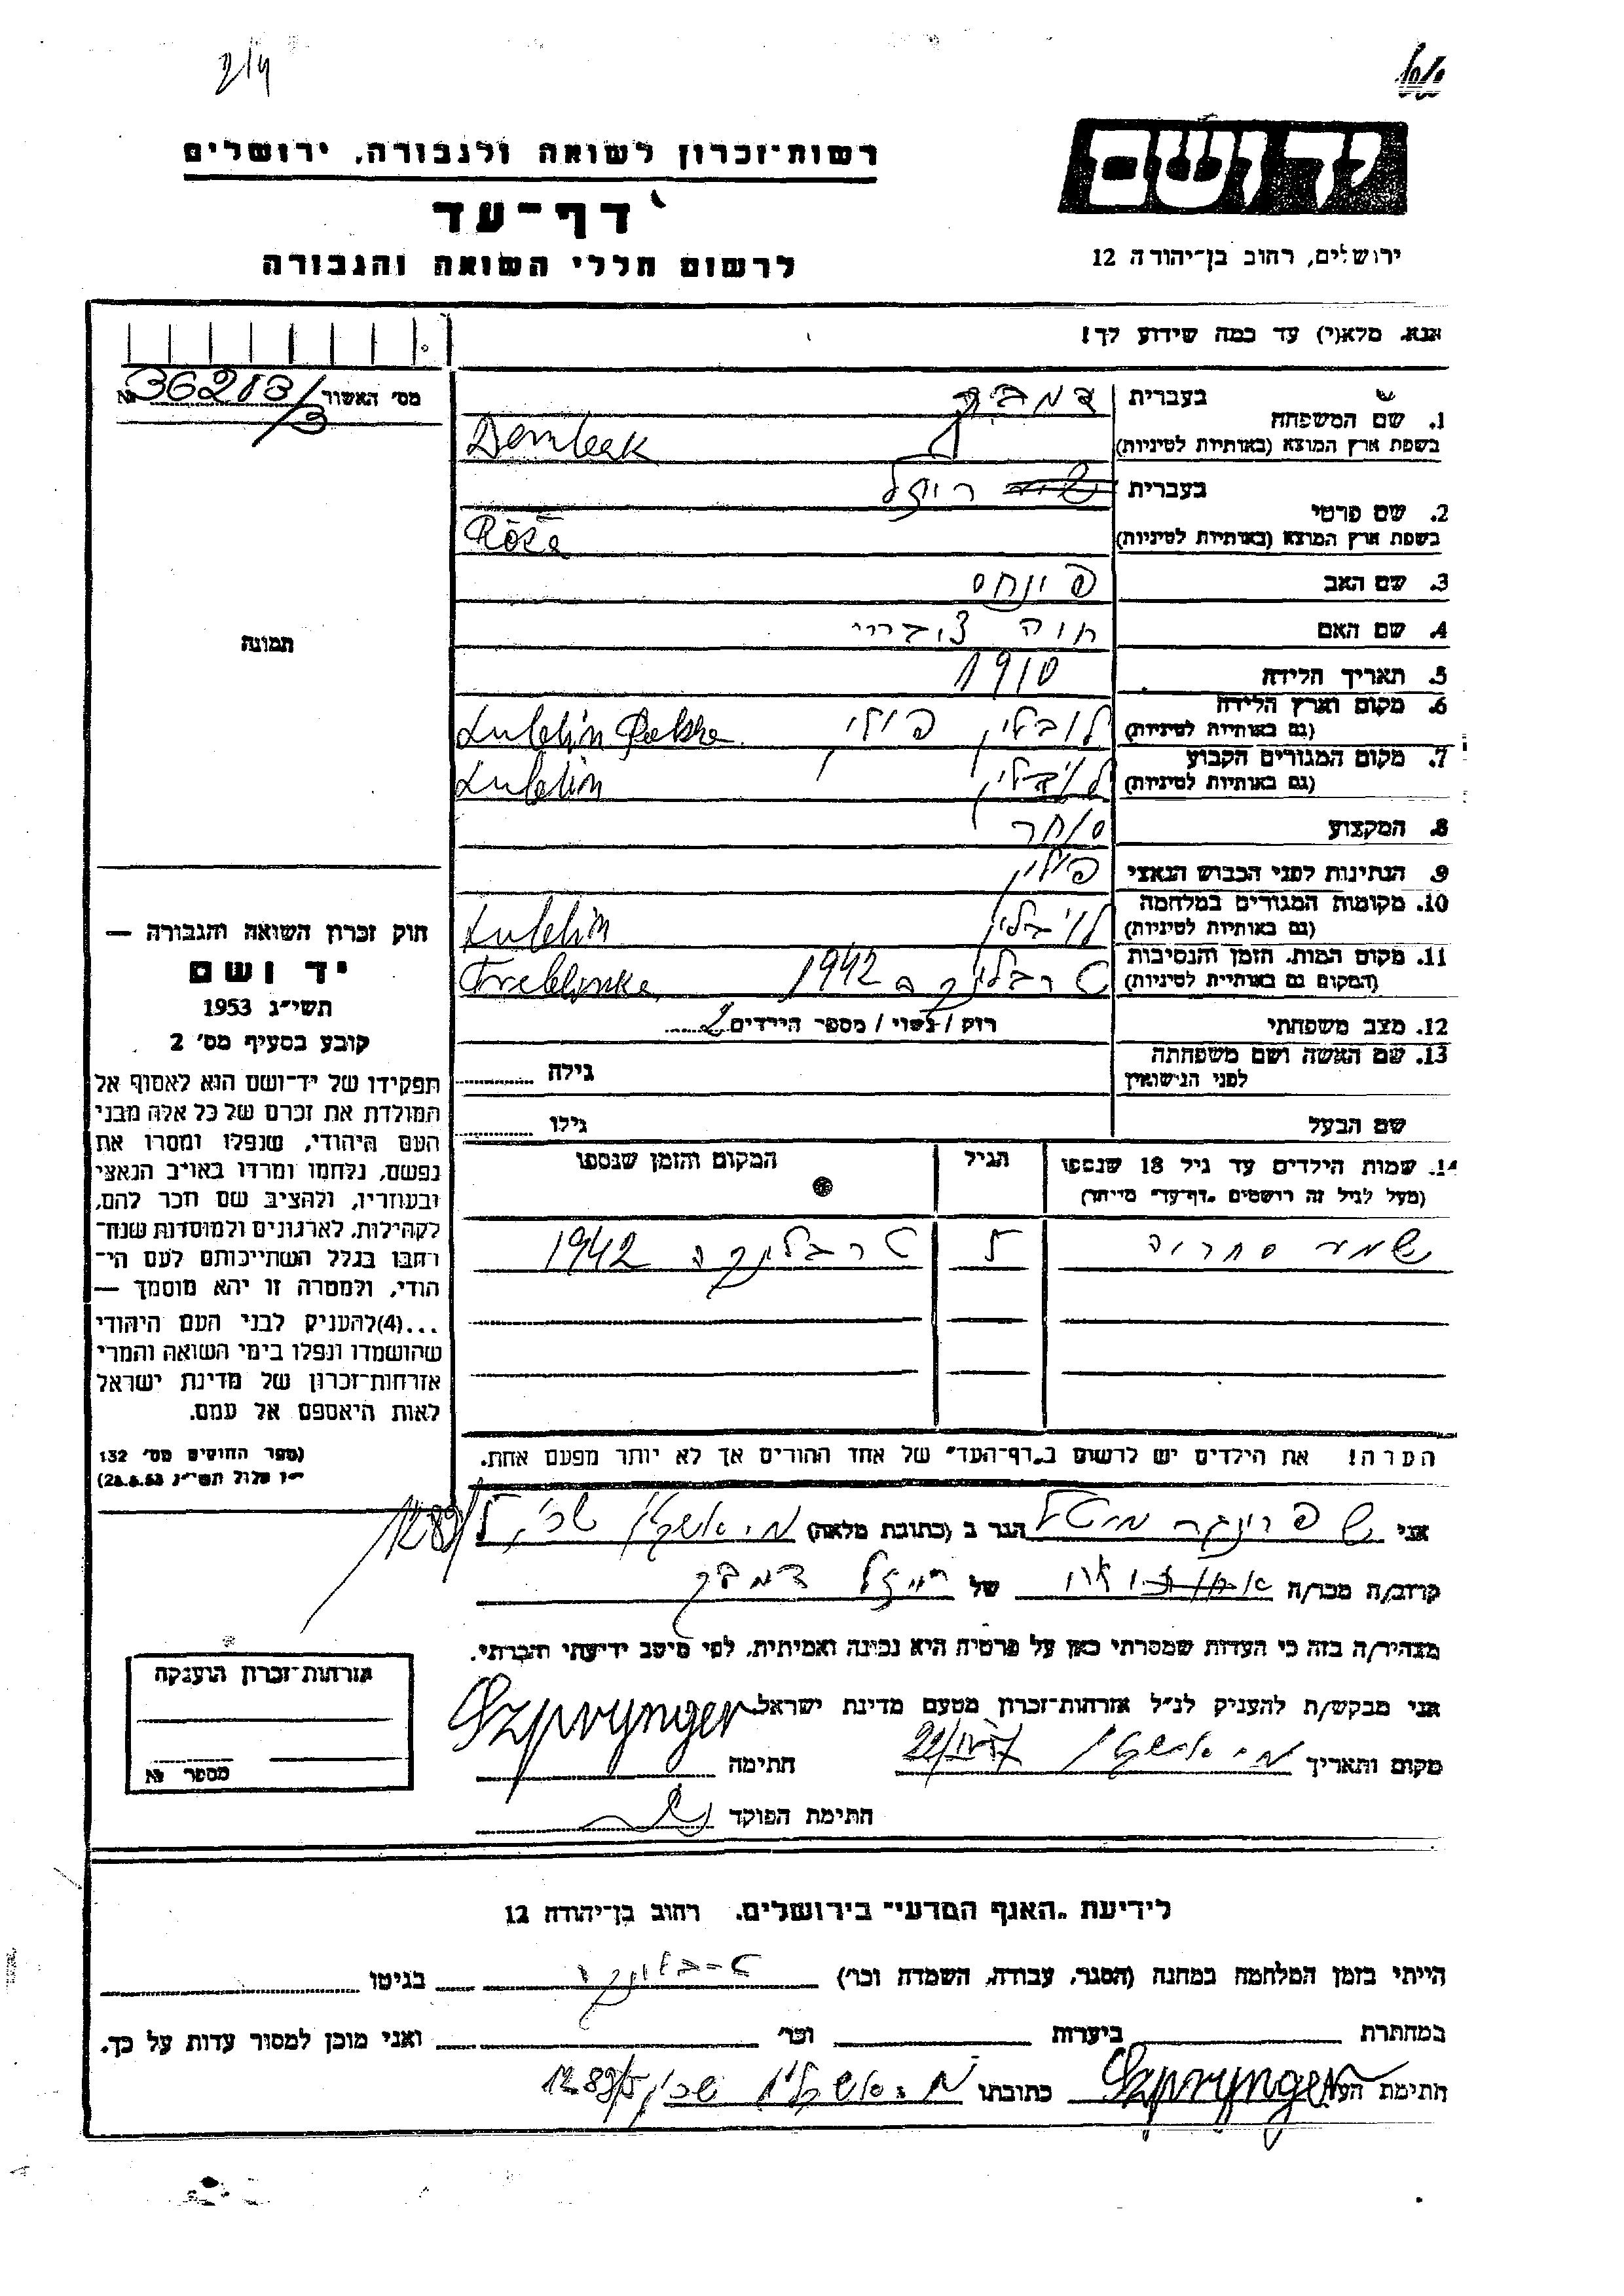 רשות-זכרון לשואה ולגבורה, ירושלים
יד ושם
דף-עד
לרשום חללי השואה והגבורה
ירושלים, רחוב בן-יהודה 12
אנא, מלא(י) עד כמה שידוע לך!
מס' האשור 36213/3 №
1. שם המשפחה
בעברית
בשפת ארץ המוצא (באותיות לטיניות) Dembak
2. שם פרטי
בעברית רויזל
בשפת ארץ המוצא (באותיות לטיניות) Róża
3. שם האב פינחס
4. שם האם חוה
5. תאריך הלידה 1910
6. מקום וארץ הלידה לובלין פולין
(גם באותיות לטיניות) Lublin Polska
7. מקום המגורים הקבוע לובלין
(גם באותיות לטיניות) Lublin
8. המקצוע סוחר
9. הנתינות לפני הכבוש הנאצי פולין
10. מקומות המגורים במלחמה לובלין
(גם באותיות לטיניות) Lublin
11. מקום המות, הזמן והנסיבות טרבלינקה 1942
(המקום גם באותיות לטיניות) Treblinka
12. מצב משפחתי רוק / נשוי / מספר הילדים 2
13. שם האשה ושם משפחתה
לפני הנישואין גילה
שם הבעל גילו
14. שמות הילדים עד גיל 18 שנספו הגיל המקום והזמן שנספו
(מעל לגיל זה רושמים "דף-עד" מיוחד)
טרבלינקה 1942
הערה! את הילדים יש לרשום ב"דף-העד" של אחד ההורים אך לא יותר מפעם אחת.
תמונה
חוק זכרון השואה והגבורה —
יד ושם
תשי"ג 1953
קובע בסעיף מס' 2
תפקידו של יד-ושם הוא לאסוף אל
המולדת את זכרם של כל אלה מבני
העם היהודי, שנפלו ומסרו את
נפשם, נלחמו ומרדו באויב הנאצי
ובעוזריו, ולהציב שם וזכר להם,
לקהילות, לארגונים ולמוסדות שנח-
רבו בגלל השתייכותם לעם הי-
הודי, ולמטרה זו יהא מוסמך —
...(4)להעניק לבני העם היהודי
שהושמדו ונפלו בימי השואה והמרי
אזרחות-זכרון של מדינת ישראל
לאות היאספם אל עמם.
(ספר החוקים מס' 132
י"ז אלול תשי"ג 28.8.53)
אני שפרינגר הגר ב (כתובת מלאה) מ. אשקלון
קרוב/ה מכר/ה של רויזל דמבק
מצהיר/ה בזה כי העדות שמסרתי כאן על פרטיה היא נכונה ואמיתית, לפי מיטב ידיעתי והכרתי.
אני מבקש/ת להעניק לנ"ל אזרחות-זכרון מטעם מדינת ישראל
מקום ותאריך מ. אשקלון חתימה Szprynger
חתימת הפוקד
אזרחות-זכרון הוענקה
מספר №
לידיעת "האגף המדעי" בירושלים, רחוב בן-יהודה 12
הייתי בזמן המלחמה במחנה (הסגר, עבודה, השמדה וכו') בגיטו
במחתרת ביערות וכו' ואני מוכן למסור עדות על כך.
חתימת העד Szprynger כתובתו מ. אשקלון שכון 1289/5